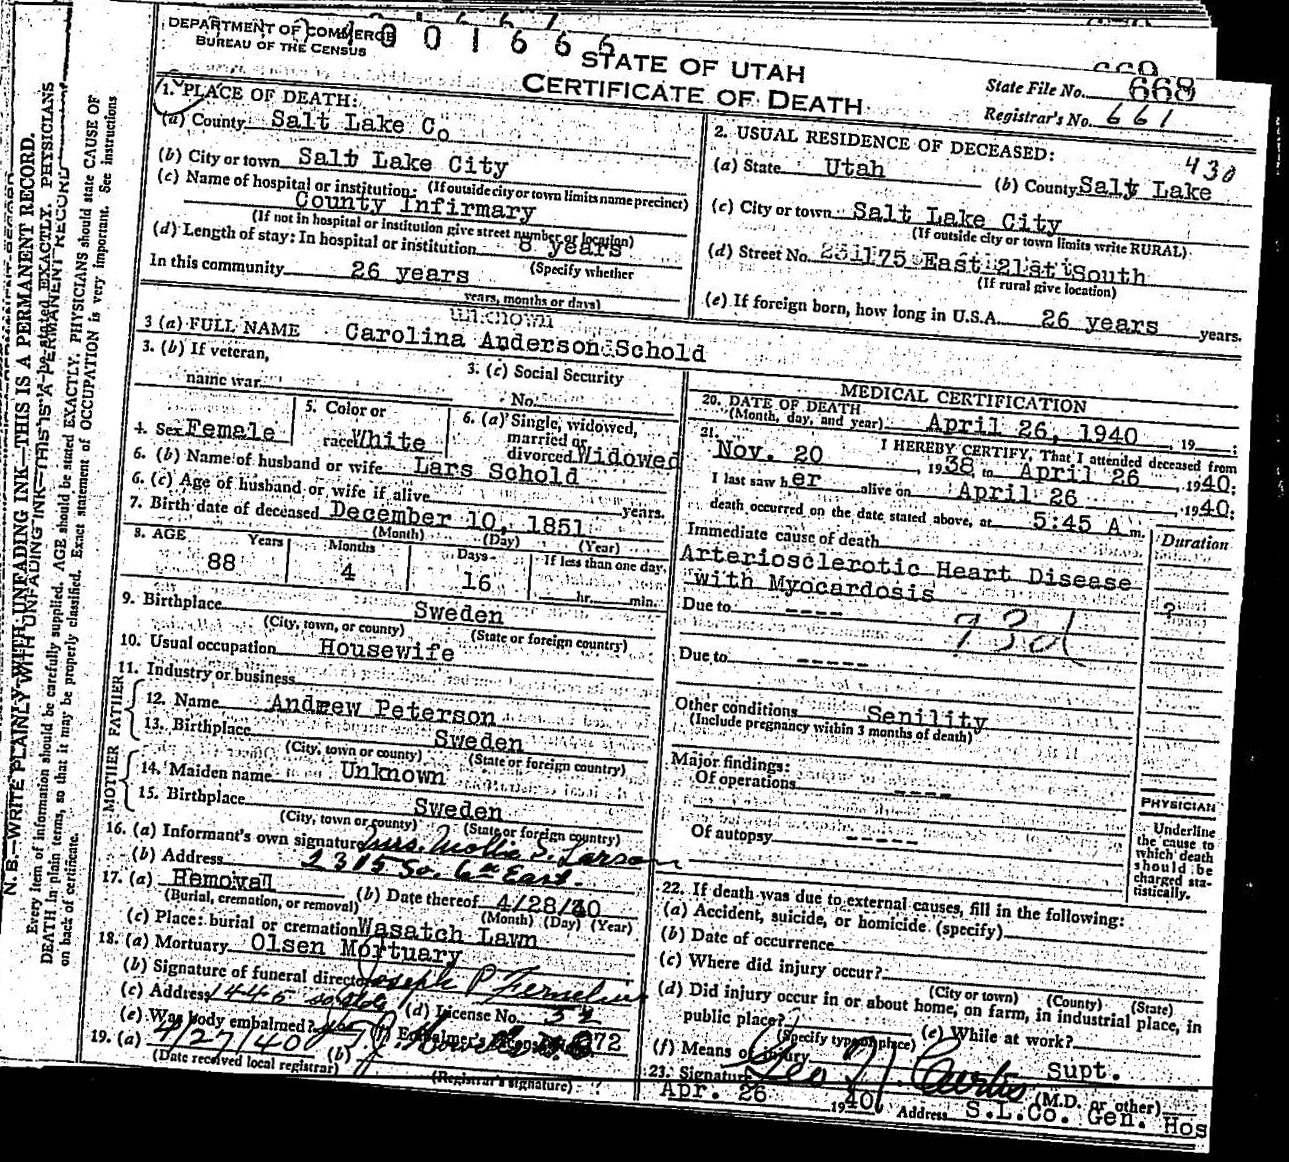 DEPARTMENT OF COMMERCE
BUREAU OF THE CENSUS
001666
STATE OF UTAH
CERTIFICATE OF DEATH
State File No. 668
Registrar's No. 661
1. PLACE OF DEATH:
(a) County Salt Lake Co
(b) City or town Salt Lake City
(If outside city or town limits name precinct)
(c) Name of hospital or institution:
County Infirmary
(If not in hospital or institution give street number or location)
(d) Length of stay: In hospital or institution 8 years
(Specify whether
In this community 26 years
years, months or days)
2. USUAL RESIDENCE OF DECEASED:
430
(a) State Utah (b) County Salt Lake
(c) City or town Salt Lake City
(If outside city or town limits write RURAL)
(d) Street No. East 21st South
(If rural give location)
(e) If foreign born, how long in U.S.A. 26 years years.
unknown
3 (a) FULL NAME Carolina Anderson Schold
3. (b) If veteran,
name war
3. (c) Social Security
No.
4. Sex Female
5. Color or
race White
6. (a) Single, widowed,
married or
divorced Widowed
6. (b) Name of husband or wife Lars Schold
6. (c) Age of husband or wife if alive years.
7. Birth date of deceased December 10, 1851
(Month) (Day) (Year)
8. AGE Years Months Days If less than one day.
88 4 16 hr. min.
9. Birthplace Sweden
(City, town, or county) (State or foreign country)
10. Usual occupation Housewife
11. Industry or business
FATHER
12. Name Andrew Peterson
13. Birthplace Sweden
(City, town or county) (State or foreign country)
MOTHER
14. Maiden name Unknown
15. Birthplace Sweden
(City, town or county) (State or foreign country)
16. (a) Informant's own signature Mrs. Mollie S. Larson
(b) Address 2315 So. 6th East.
17. (a) Removal (b) Date thereof 4/28/40
(Burial, cremation, or removal) (Month) (Day) (Year)
(c) Place: burial or cremation Wasatch Lawn
18. (a) Mortuary Olsen Mortuary
(b) Signature of funeral director Joseph P
(c) Address (d) License No. 52
(e) Was body embalmed? yes
19. (a) 4/27/40 (b)
(Date received local registrar) (Registrar's signature)
MEDICAL CERTIFICATION
20. DATE OF DEATH
(Month, day, and year) April 26, 1940, 19
21. I HEREBY CERTIFY, That I attended deceased from
Nov. 20, 1938 to April 26, 1940;
I last saw her alive on April 26 1940;
death occurred on the date stated above, at 5:45 A m.
Immediate cause of death
Duration
Arteriosclerotic Heart Disease
with Myocardosis
?
Due to ----
93d
Due to -----
Other conditions Senility
(Include pregnancy within 3 months of death)
Major findings:
Of operations ----
Of autopsy -----
PHYSICIAN
Underline
the cause to
which death
should be
charged sta-
tistically.
22. If death was due to external causes, fill in the following:
(a) Accident, suicide, or homicide (specify)
(b) Date of occurrence
(c) Where did injury occur?
(City or town) (County) (State)
(d) Did injury occur in or about home, on farm, in industrial place, in
public place?
(Specify type of place) (e) While at work?
(f) Means of injury
23. Signature Geo N. Curtis Supt.
(M.D. or other)
Apr. 26 1940 Address S.L.Co. Gen. Hos
N. B.—WRITE PLAINLY WITH UNFADING INK—THIS IS A PERMANENT RECORD.
Every item of information should be carefully supplied. AGE should be stated EXACTLY. PHYSICIANS should state CAUSE OF
DEATH in plain terms, so that it may be properly classified. Exact statement of OCCUPATION is very important. See instructions
on back of certificate.